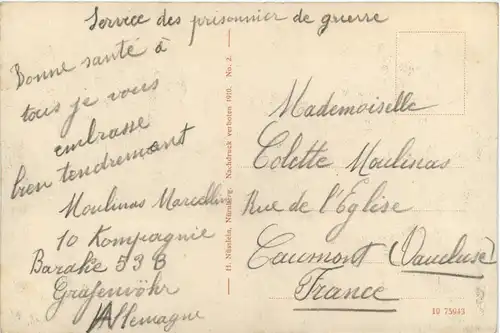 Service des prisonnier de guerre
Bonne santé à
tous je vous
embrasse
bien tendrement
Moulinas Marcellin
10 Kompagnie
Baracke 53 B
Grafenwöhr
Allemagne
H. Nüsslein, Nürnberg. Nachdruck verboten 1910. No. 2.
Mademoiselle
Colette Moulinas
Rue de l'Eglise
Caumont (Vaucluse)
France
10 75943